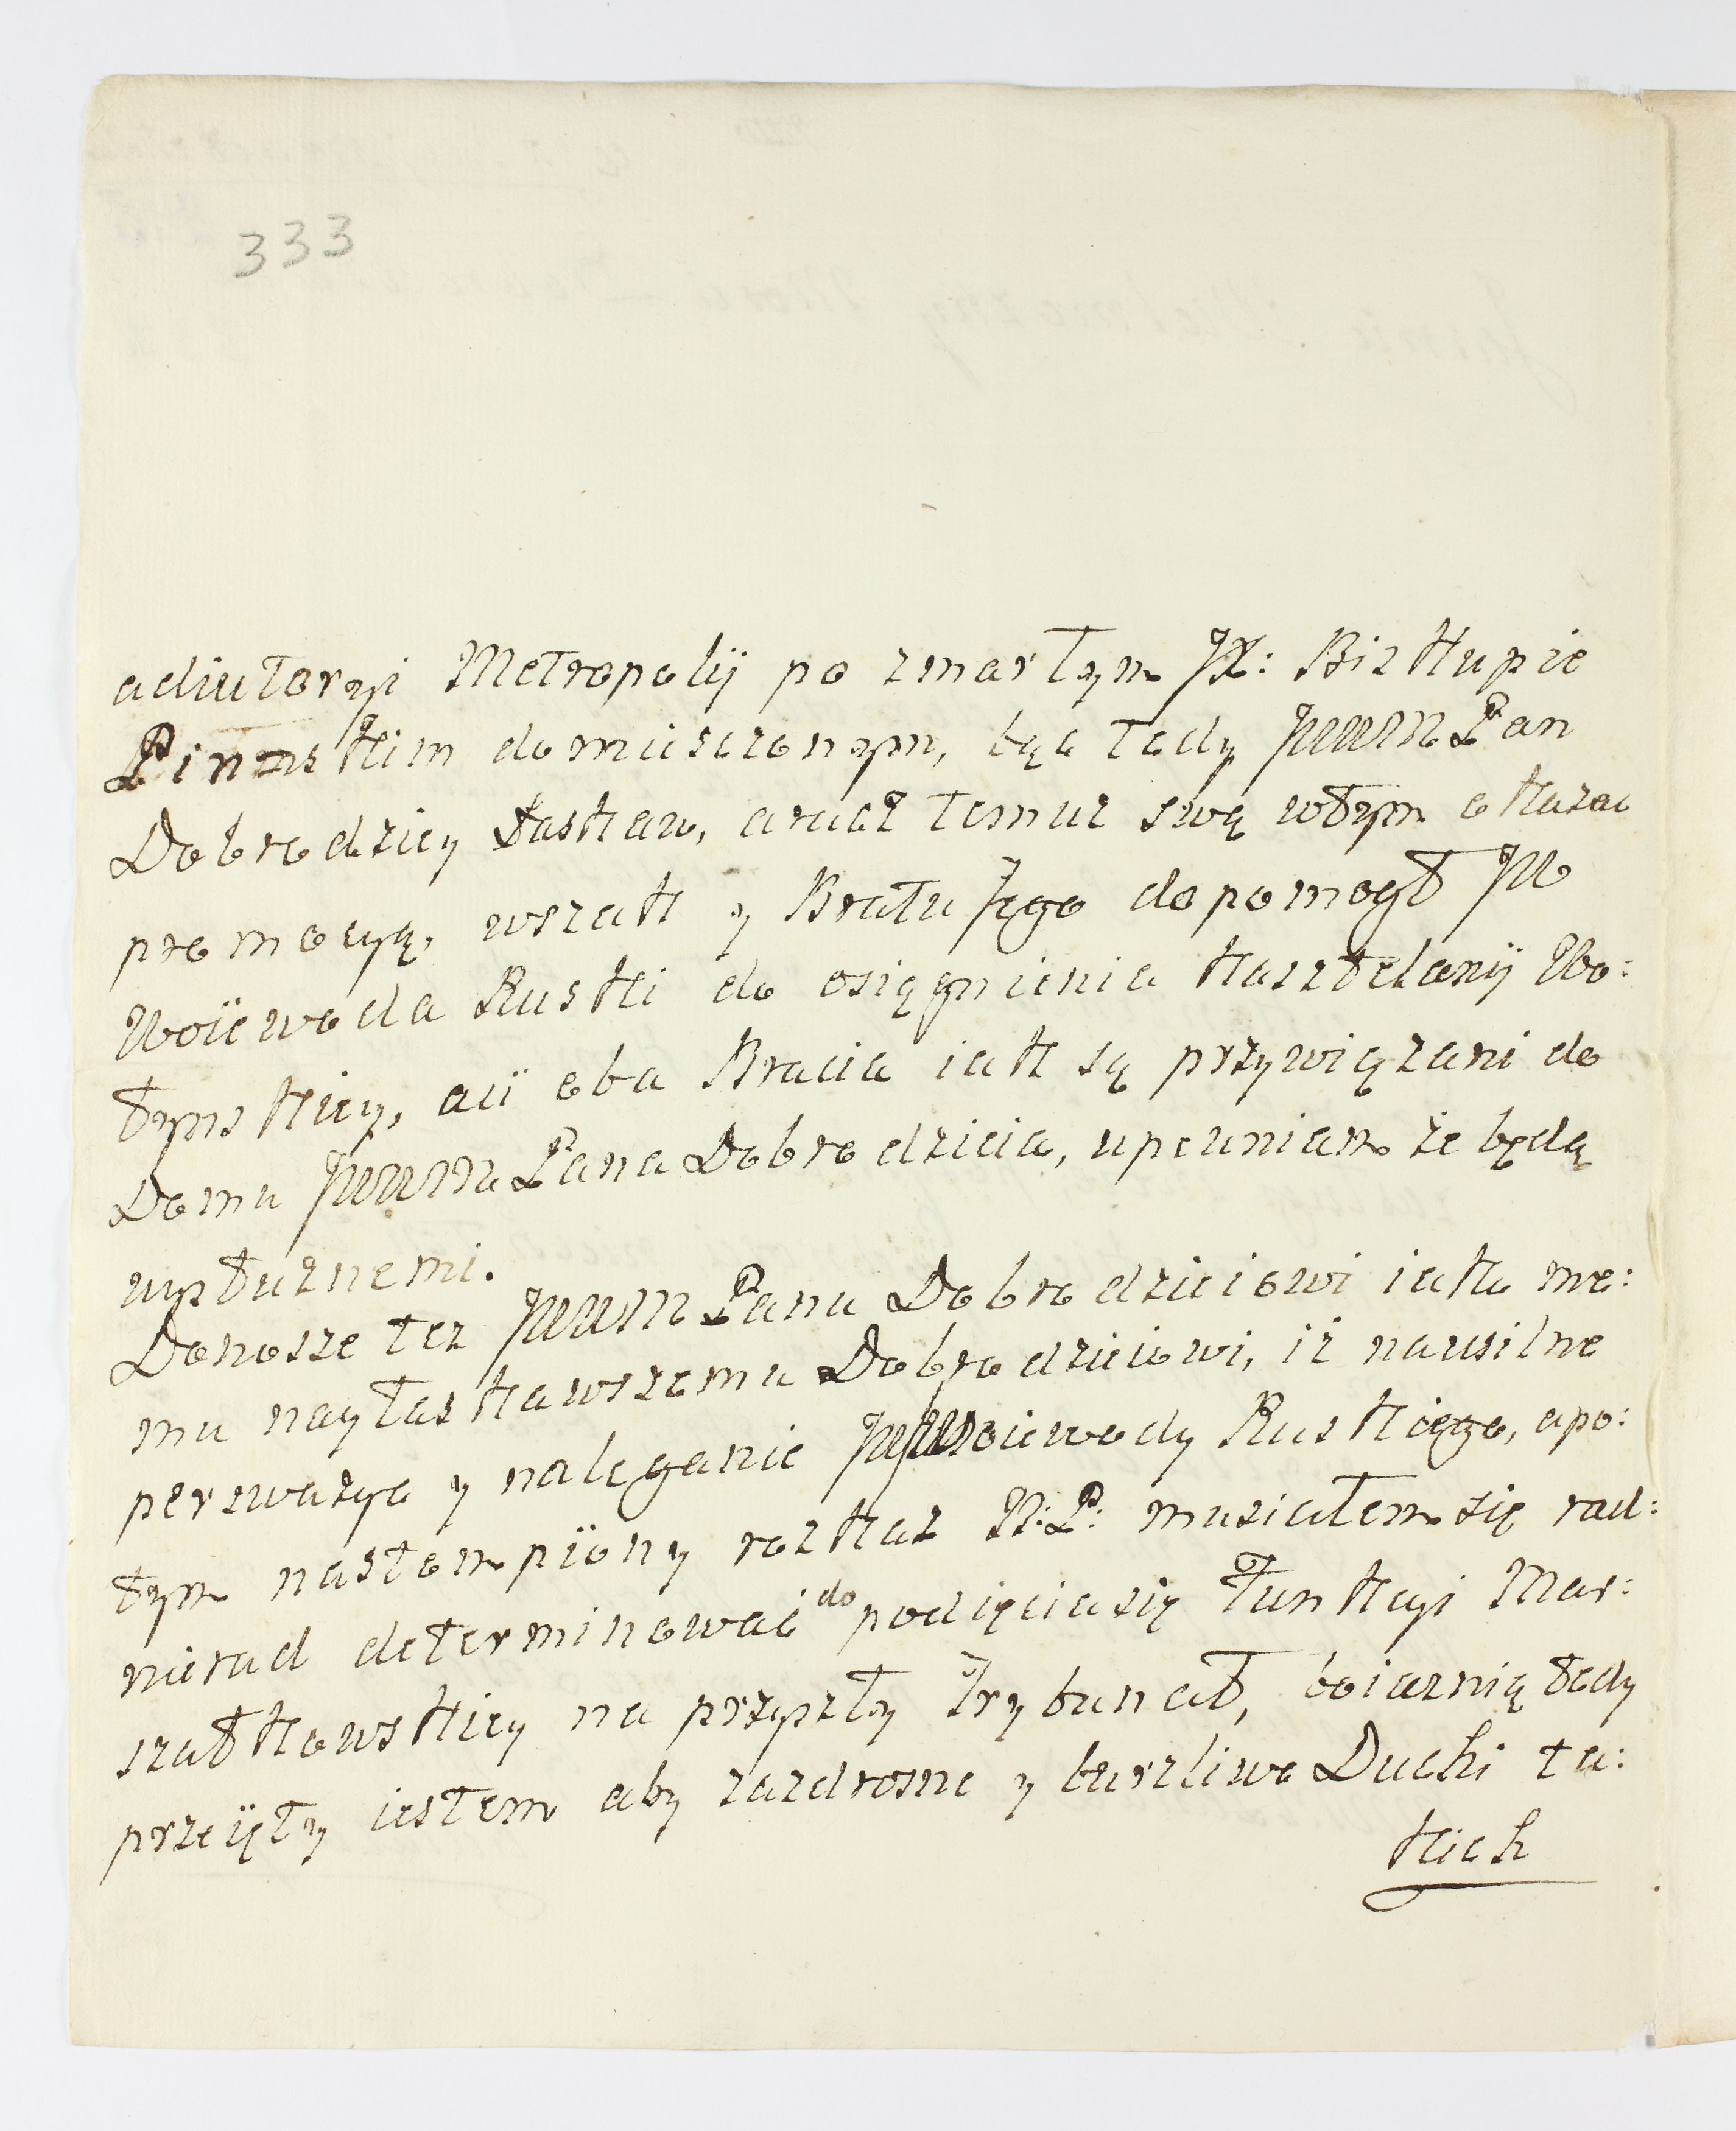 333
adiutoryi Metropolij po zmarłym JX: Biskupie
Pinskim domieszczonym, bąc tedy JWWM Pan
Dobrodziey łaskaw, aracz temuz swą wtym okazac
promocyą, wszak y Bratu Jego dopomogł JW
Woiewoda Ruski do osiągnienia Kasztelanij Wo:
łynskiey, aiï oba Bracia iak są przywiązani do
Domu JWWMM Pana Dobrodzieia, upewniam że będą
wypłuznemi.
Donosze tez JWWM Panu Dobrodzieiowi iako me:
mu nayłaskawszemu Dobrodzieiowi, iż nausilne
perswazye y naleganie JWWoiewody Ruskiego, apo:
tym nastompiony rozkaz N: P: musiałem się rad:
nierad determinować do podięcia się Funkcyi Mar:
szałkowskiey na przyszły Trybunał, boiaznią tedy
przeięty iestem aby zazdrosne y burzliwe Duchi ta:
kich